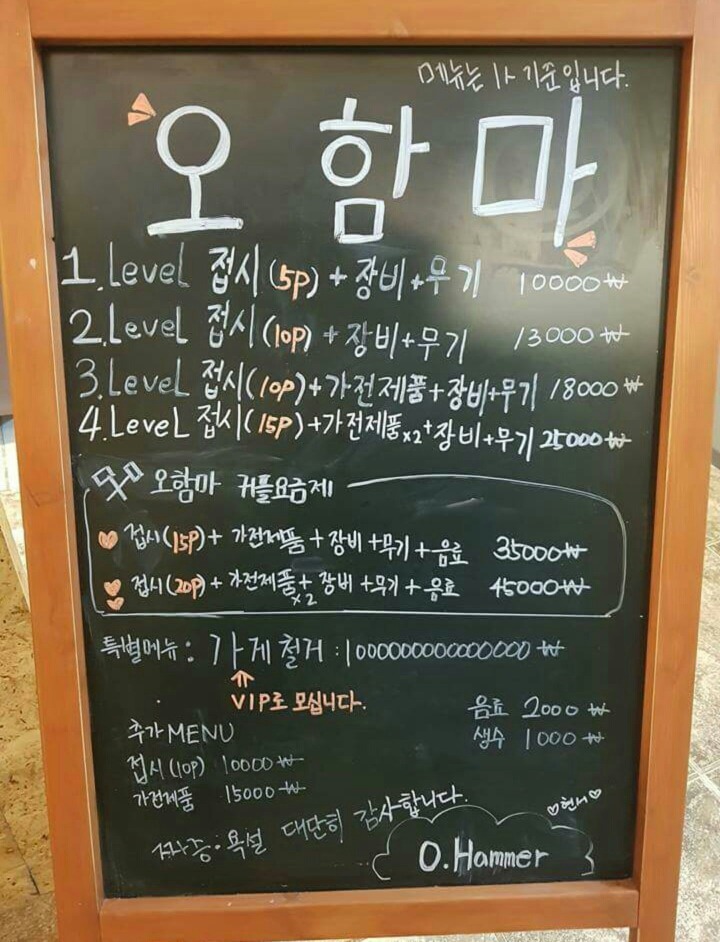 메뉴는 1人 기준입니다.
오 함 마
1. Level 접시(5P) + 장비 + 무기 10000₩
2. Level 접시(10P) + 장비+무기 13000₩
3. Level 접시(10P)+가전제품+장비+무기 18000₩
4. LeveL 접시(15P)+가전제품x2+장비+무기 25000₩
오함마 커플요금제
접시(15P)+ 가전제품 + 장비 +무기 + 음료 35000₩
접시(20P) + 가전제품x2 + 장비 + 무기 + 음료 45000₩
특별메뉴: 가게 철거 : 1000000000000000 ₩
VIP로 모십니다.
음료 2000 ₩
생수 1000 ₩
추가 MENU
접시(10P) 10000₩
가전제품 15000₩
욕설 대단히 감사합니다.
♡현서♡
O.Hammer